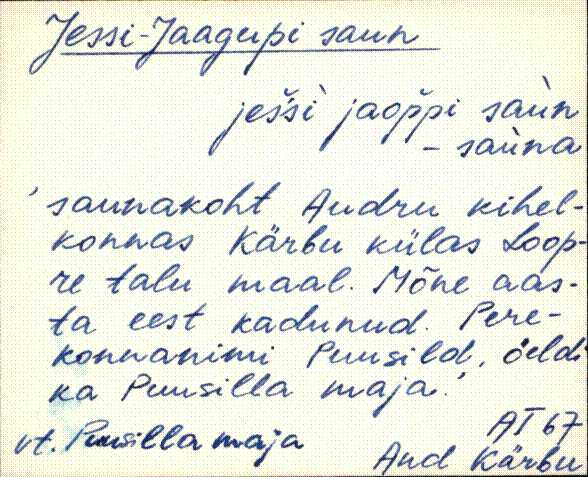 Jessi-Jaagupi saun
ješši̇̀ jaoppi sau̇̀n
- sau̇̀na
'saunakoht Audru kihel-
konnas Kärbu külas Loop-
re talu maal. Mõne aas-
ta eest kadunud. Pere-
konnanimi Puusild, öeldi
ka Puusilla maja.'
vt. Puusilla maja
AT 67
Aud Kärbu